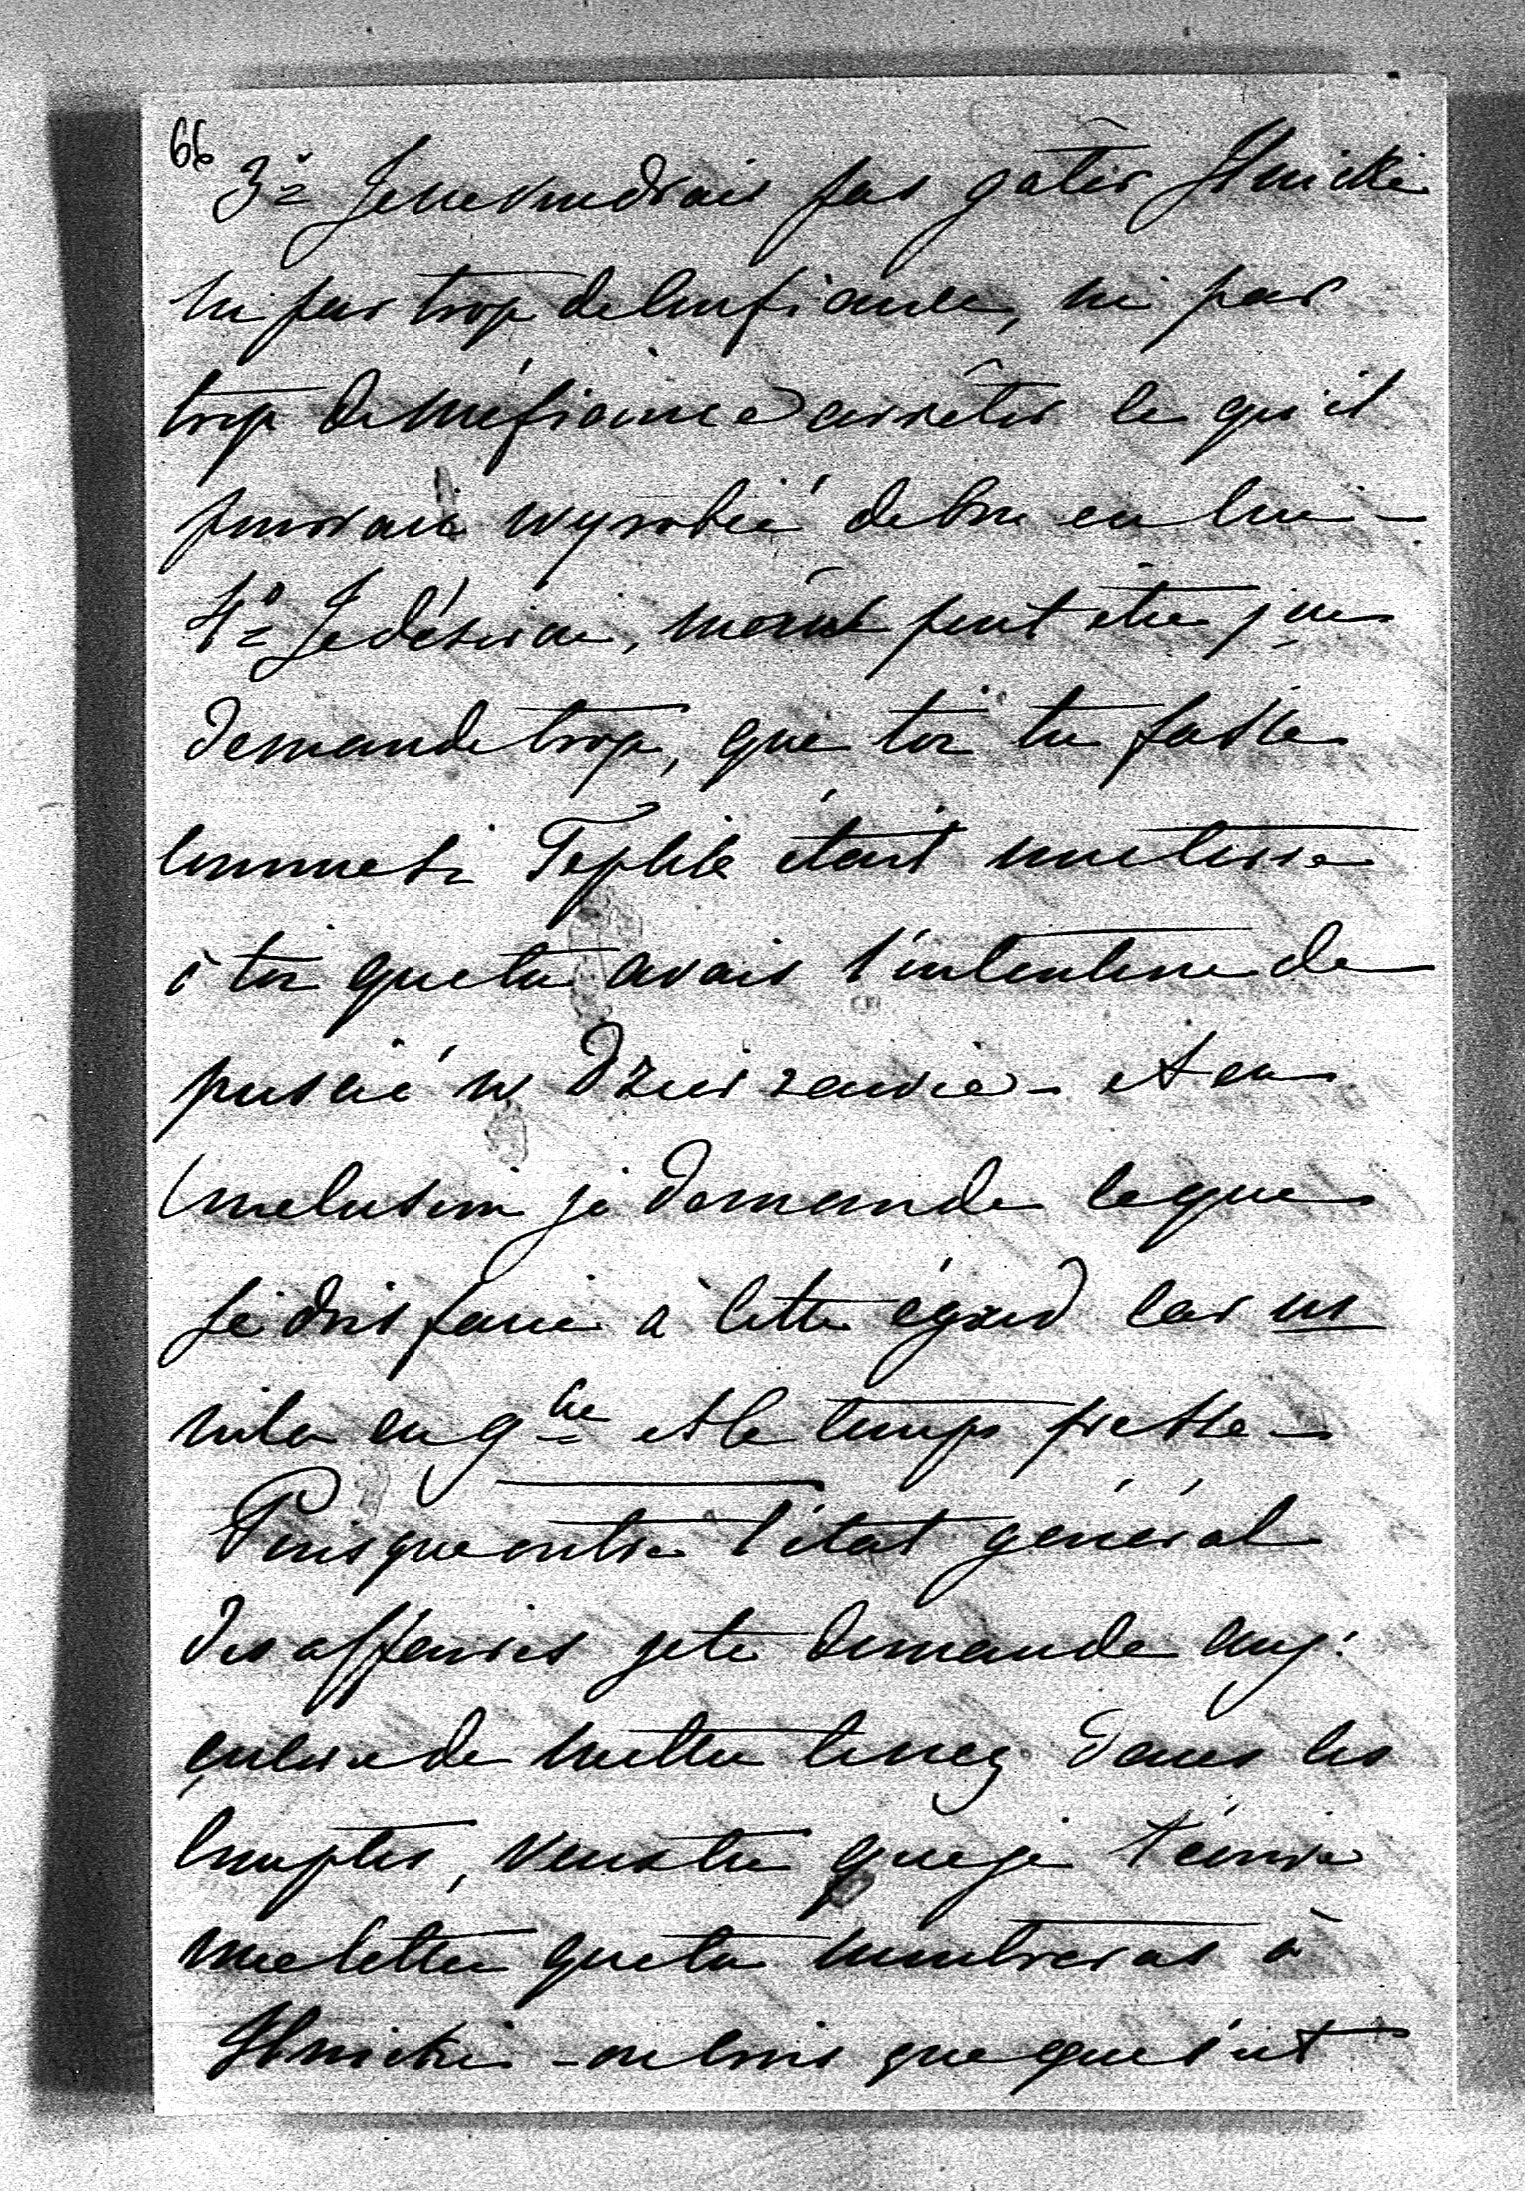 66
3º Je ne voudrais pas gâter Ilnicki
ni par trop de confiance, ni par
trop de méfiance arrêter ce qu'il
pourrait wyrobić de bon en lui –
4º Je désirai, mais peut être j'en
demande trop, que toi tu fasse
comme si Teplik était une terre
à toi que tu avais l'intention de
puścić w dzierżawie – et en
conclusion je demande ce que
je dois faire à cette égard car
voila en 9bre et le temps presse –
Puisque outre l'état général
des affaires je te demande
encore de mettre le nez dans les
comptes, veux tu que je t'écrive
une lettre que tu montreras à
Ilnicki – ou bien que